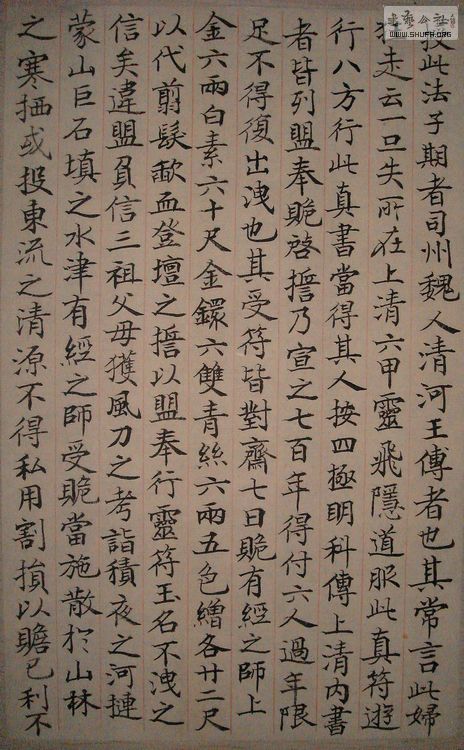 书艺公社
WWW.SHUFA.ORG
授此法子期者司州魏人清河王傅者也其常言此婦
狂走云一旦失所在上清六甲靈飛隱道服此真符遊
行八方行此真書當得其人按四極明科傳上清內書
者皆列盟奉貺啓誓乃宣之七百年得付六人過年限
足不得復出洩也其受符皆對齋七日貺有經之師上
金六兩白素六十尺金鐶六雙青絲六兩五色繒各廿二尺
以代翦髮歃血登壇之誓以盟奉行靈符玉名不洩之
信矣違盟負信三祖父母獲風刀之考詣積夜之河摙
蒙山巨石填之水津有經之師受貺當施散於山林
之寒栖或投東流之清源不得私用割損以贍己利不